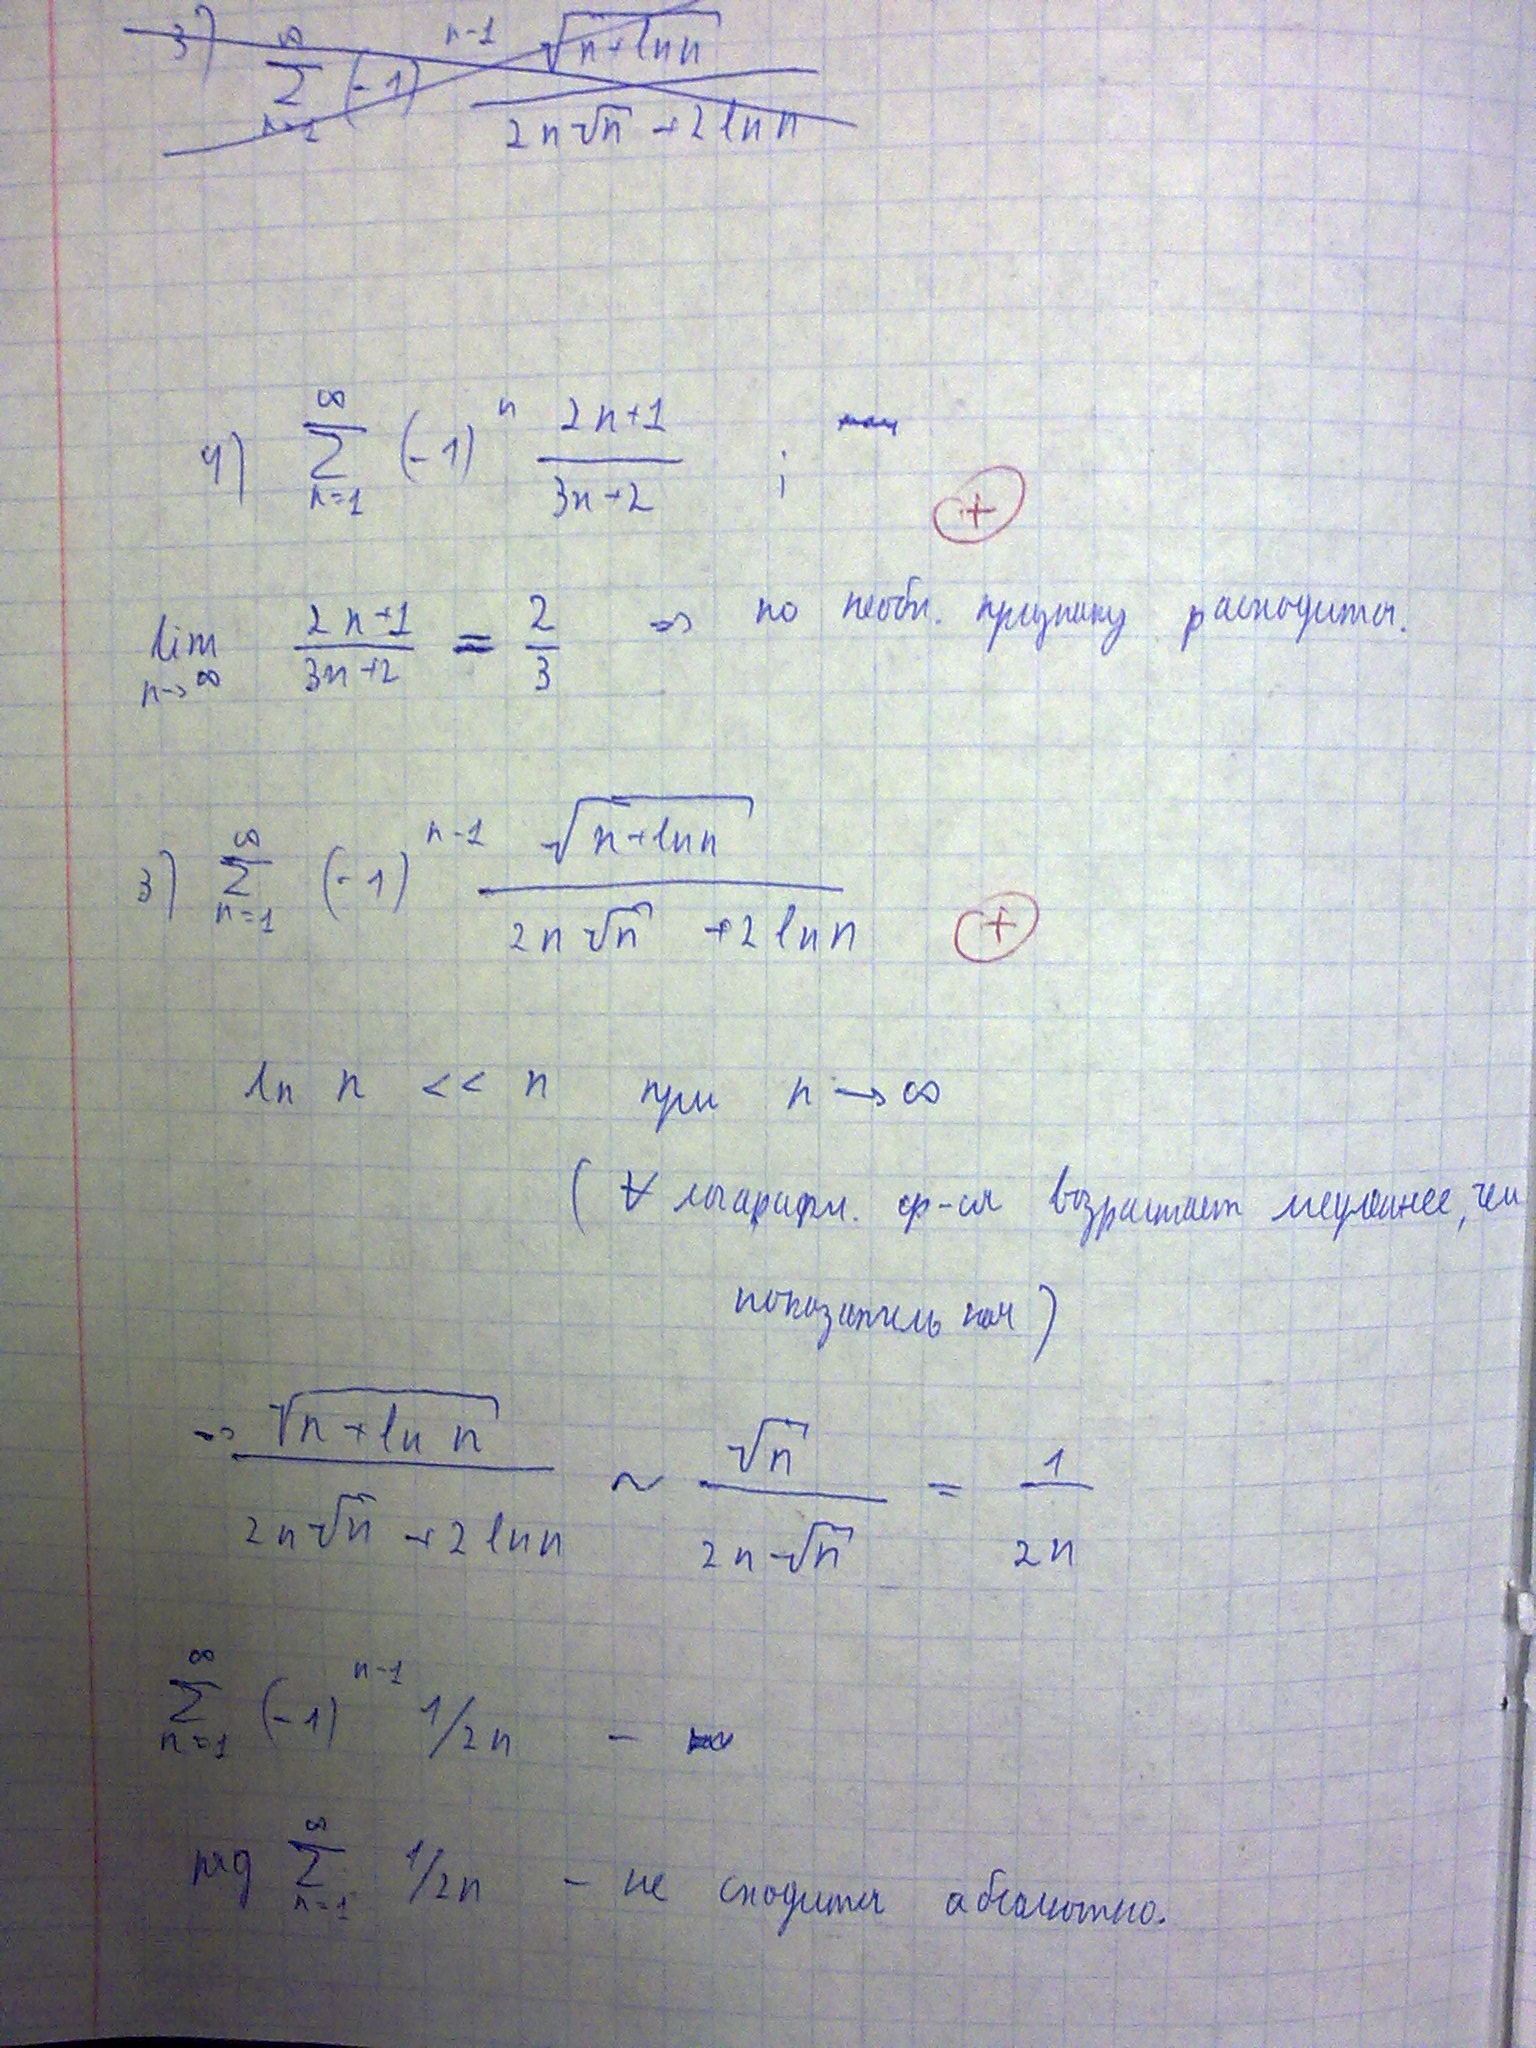 3) ∞ Σ n=1 (-1)^(n-1) √(n+ln n) / (2n√n + 2 ln n)
4) ∞ Σ n=1 (-1)^n (2n+1)/(3n+2) ;
+
lim n→∞ (2n+1)/(3n+2) = 2/3 ⇒ по необх. признаку расходится.
3) ∞ Σ n=1 (-1)^(n-1) √(n+ln n) / (2n√n + 2 ln n)
+
ln n << n при n → ∞
(∀ логарифм. ф-ия возрастает медленнее, чем
показательная)
⇒ √(n+ln n) / (2n√n + 2 ln n) ~ √n / (2n√n) = 1/(2n)
∞ Σ n=1 (-1)^(n-1) 1/2n –
ряд ∞ Σ n=1 1/2n – не сходится абсолютно.